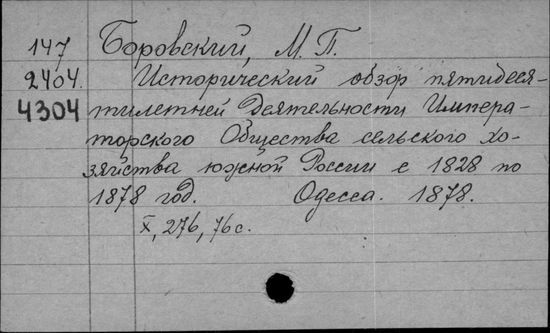 147 Боровский, М. П.
2404. Исторический обзор пятидеся-
4304 тилетней деятельности Импера-
торского Общества сельского хо-
зяйства южной России с 1828 по
1878 год. Одесса. 1878.
X, 276, 76 с.